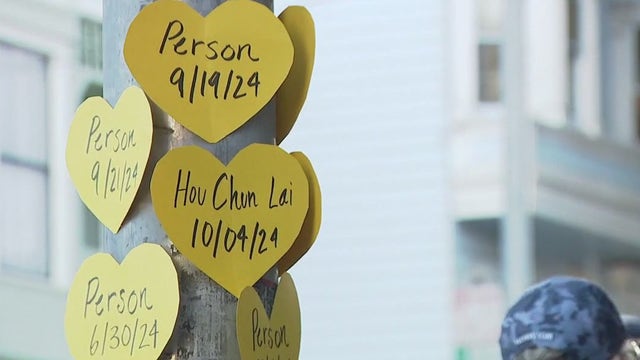 Person
9/19/24
Person
9/21/24
Hou Chun Lai
10/04/24
Person
6/30/24
Person